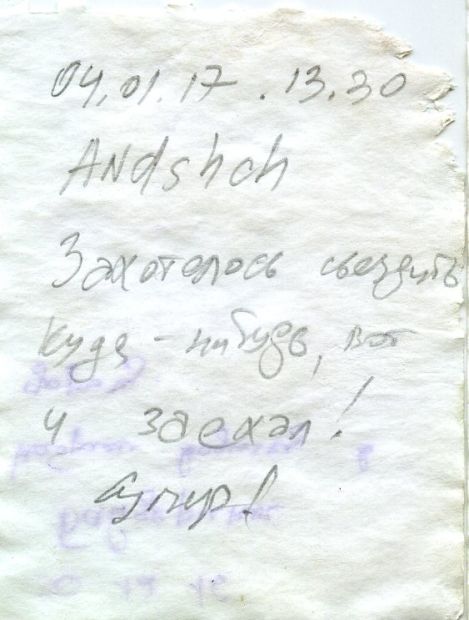 04.01.17. 13.30
ANdshch
Захотелось съездить
куда-нибудь, вот
и заехал!
Супер!